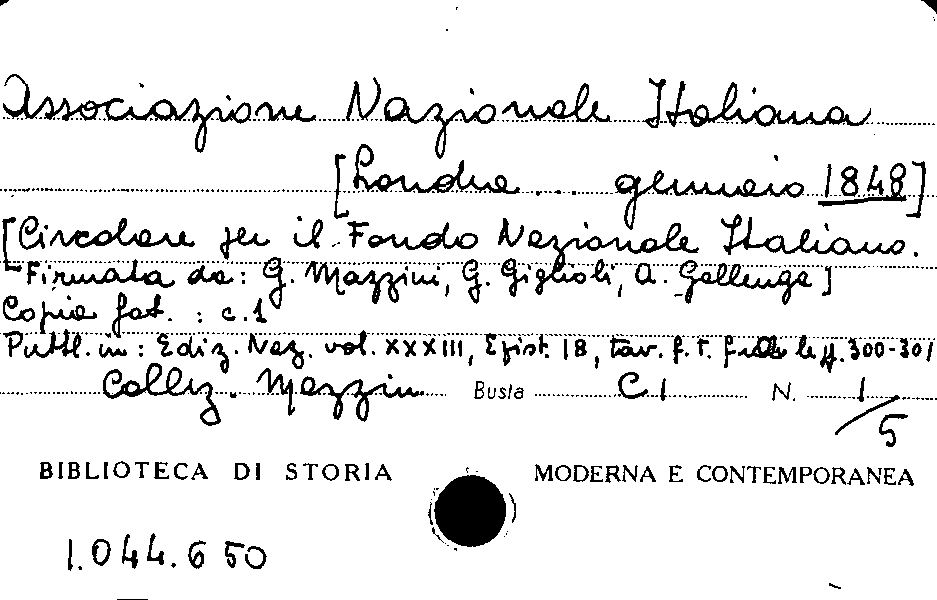 Associazione Nazionale Italiana
[Londra ... gennaio 1848]
[Circolare per il Fondo Nazionale Italiano.
Firmata da: G. Mazzini, G. Giglioli, A. Gallenga]
Copia fot. : c.1
Pubbl. in: Ediz. Naz. vol. XXXIII, Epist. 18, tav. f. t. fra le pp. 300-301
Collez. Mazzini Busta C.1 N. 1/5
BIBLIOTECA DI STORIA MODERNA E CONTEMPORANEA
1.044.650